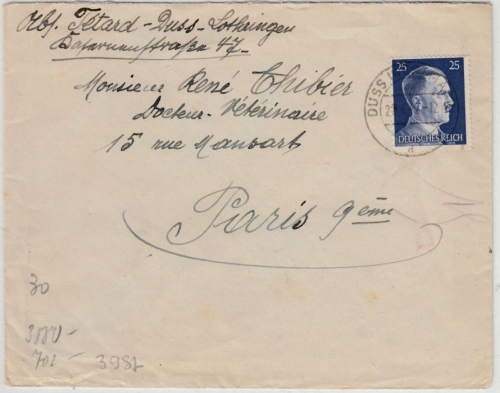 Abs. Tétard - Duss - Lothringen
Kasernenstraße 47.
Monsieur René Thibier
Docteur - Vétérinaire
15 rue Mansart
Paris 9ème
25 25
DEUTSCHES REICH
DUSS
30
3987